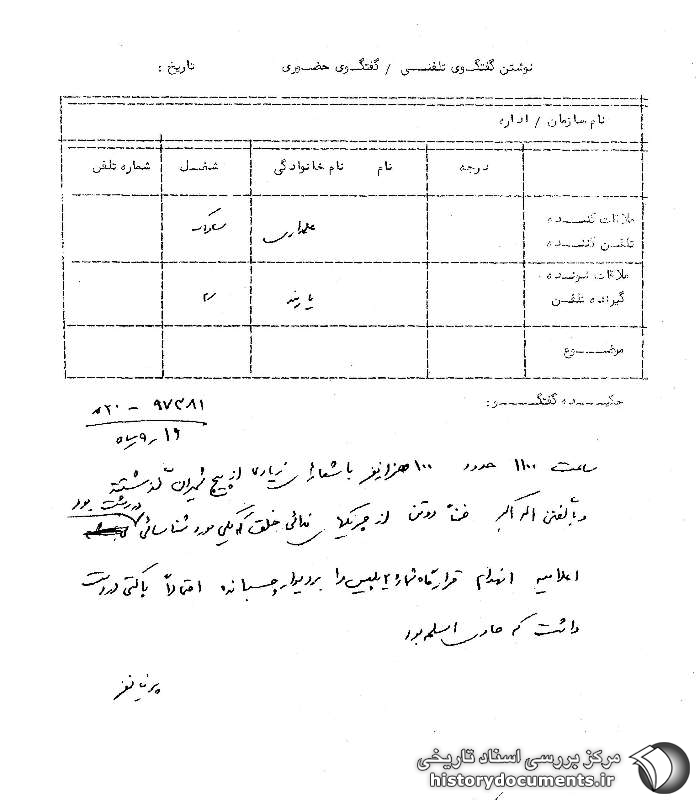 نوشتن گفتگوی تلفنی / گفتگوی حضوری تاریخ :
نام سازمان / اداره
درجه نام نام خانوادگی شغل شماره تلفن
ملاقات کننده علمداری ساواک
تلفن کننده
ملاقات شونده
گیرنده تلفن پارینه
موضوع
چکیده گفتگو:
۹۷۳۸۱ – ۲۰
۱۹
ساعت ۱۱۰۰ حدود ۱۰۰ هزار نفر با شعارهای زیاد از پیچ شمیران گذشتند
و با گفتن اله اکبر ضمناً دو تن از چریکهای فدائی خلق که یکی مورد شناسائی
در دست بود
اعلامیه انهدام قرارگاه شماره ۲ پلیس را بر دیوار چسبانده احتمالاً پاکتی در دست
داشت که حاوی اسلحه بود
مرکز بررسی اسناد تاریخی
historydocuments.ir